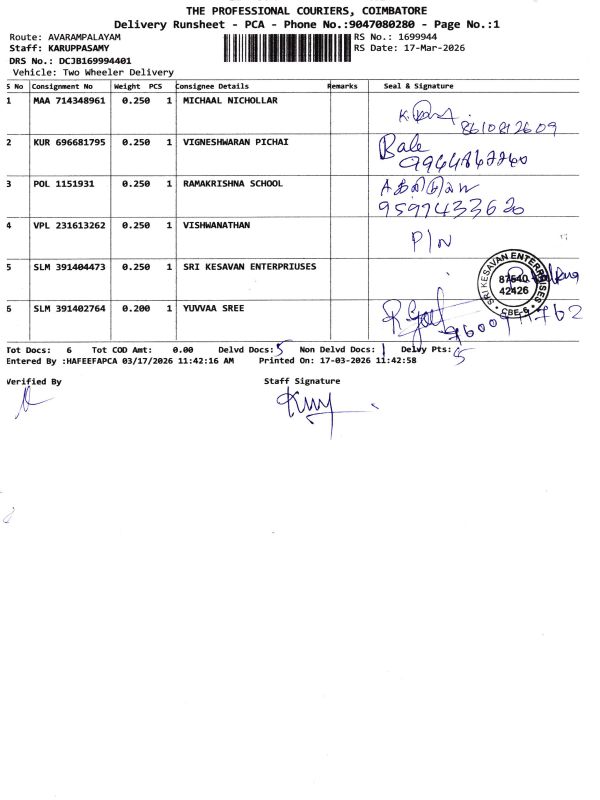 THE PROFESSIONAL COURIERS, COIMBATORE
Delivery Runsheet - PCA - Phone No.:9047080280 - Page No.:1
Route: AVARAMPALAYAM RS No.: 1699944
Staff: KARUPPASAMY RS Date: 17-Mar-2026
DRS No.: DCJB169994401
Vehicle: Two Wheeler Delivery
S No Consignment No Weight PCS Consignee Details Remarks Seal & Signature
1 MAA 714348961 0.250 1 MICHAAL NICHOLLAR
8610812609
2 KUR 696681795 0.250 1 VIGNESHWARAN PICHAI Bale
3 POL 1151931 0.250 1 RAMAKRISHNA SCHOOL
9597433620
4 VPL 231613262 0.250 1 VISHWANATHAN P/N
5 SLM 391404473 0.250 1 SRI KESAVAN ENTERPRIUSES
SRI KESAVAN ENTERPRISES
87540
42426
CBE-6
6 SLM 391402764 0.200 1 YUVVAA SREE
Tot Docs: 6 Tot COD Amt: 0.00 Delvd Docs: 5 Non Delvd Docs: 1 Delvy Pts: 5
Entered By :HAFEEFAPCA 03/17/2026 11:42:16 AM Printed On: 17-03-2026 11:42:58
Verified By Staff Signature